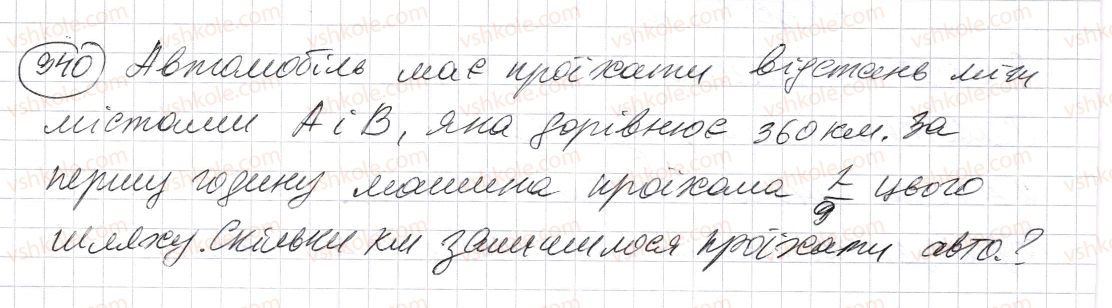 940 Автомобіль має проїхати відстань між
містами А і В, яка дорівнює 360 км. За
першу годину машина проїхала 2/9 цього
шляху. Скільки км залишилося проїхати авто.?